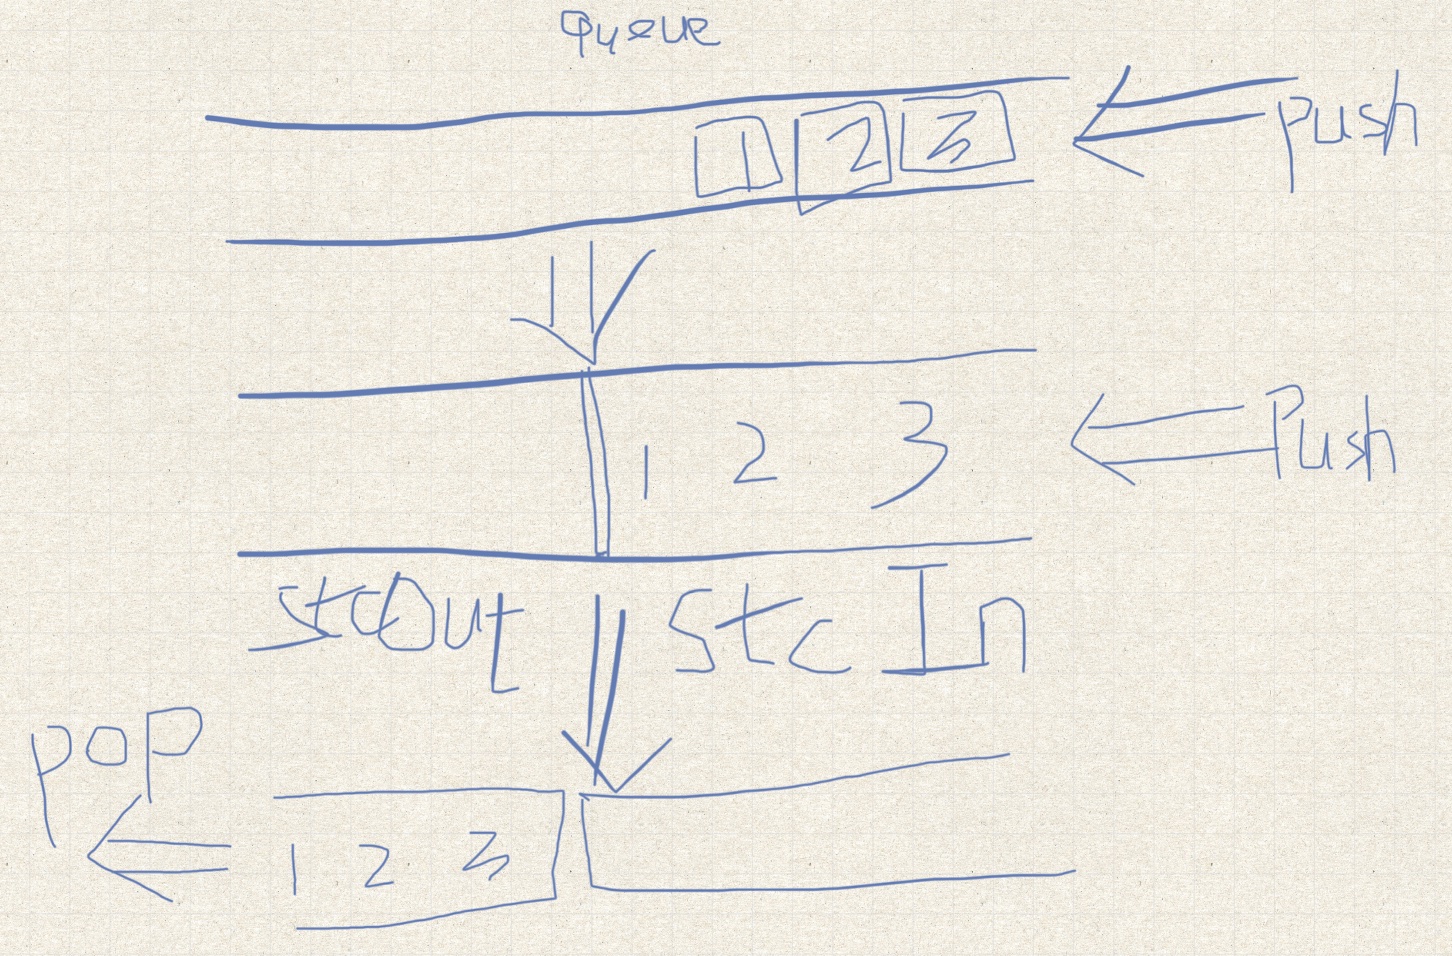 Queue
1 2 3
push
1 2 3
Push
stcOut
stc In
pop
1 2 3